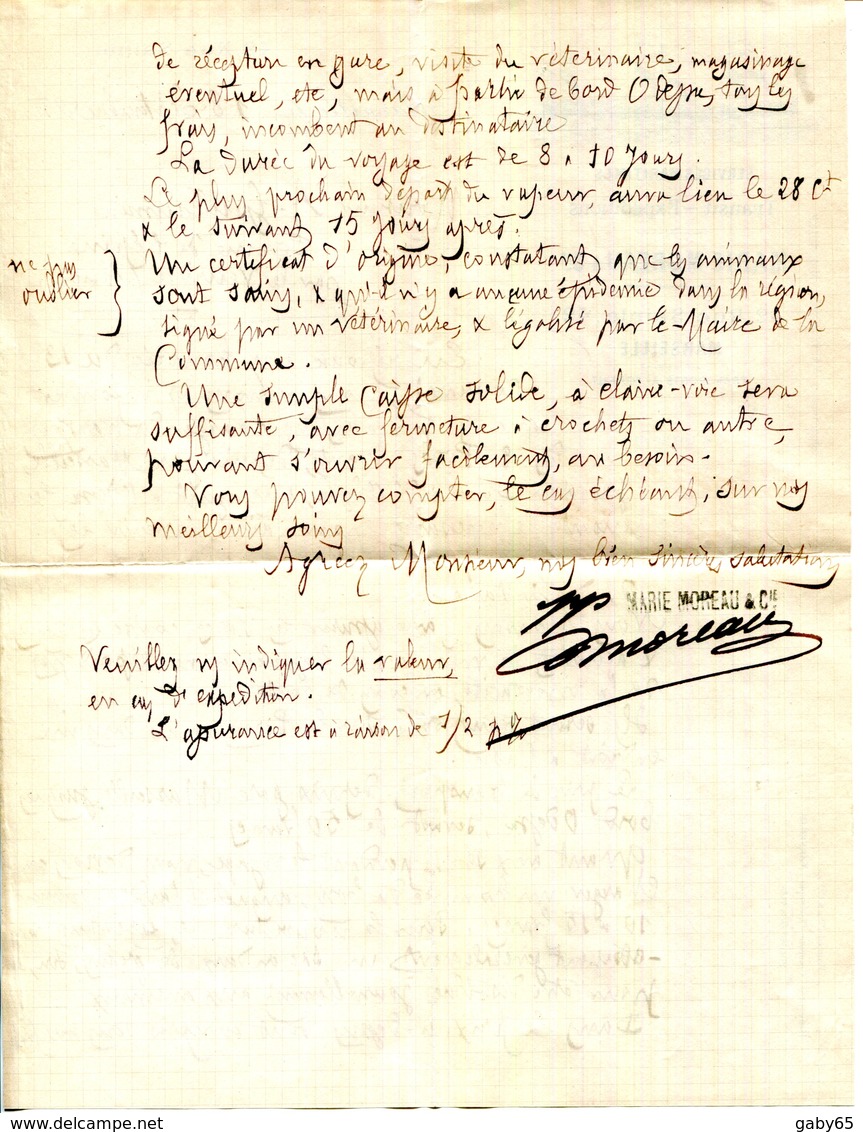 de réception en gare, visite du véterinaire, magasinage
éventuel, etc, mais à partir de bord Odessa, tous les
frais, incombent au destinataire
La durée du voyage est de 8 à 10 jours.
Le plus prochain départ du vapeur, aura lieu le 28 Ct
& le suivant 15 jours après.
ne pas
oublier
Un certificat d'origine, constatant que les animaux
sont sains, & qu'il n'y a aucune épidemie dans la région,
signé par un vétérinaire, & légalisé par le Maire de la
Commune.
Une simple Caisse solide, à claire-voie sera
suffisante, avec fermeture à crochets ou autre,
pouvant s'ouvrir facilement, au besoin.
Vous pouvez compter, le cas échéant, sur nos
meilleurs soins
Agréez Monsieur, nos bien sincères salutations
pp MARIE MOREAU & CIE
Moreau
Veuillez ns indiquer la valeur,
en cas d'expédition.
L'assurance est à raison de 1/2 p %
delcampe.net
gaby65